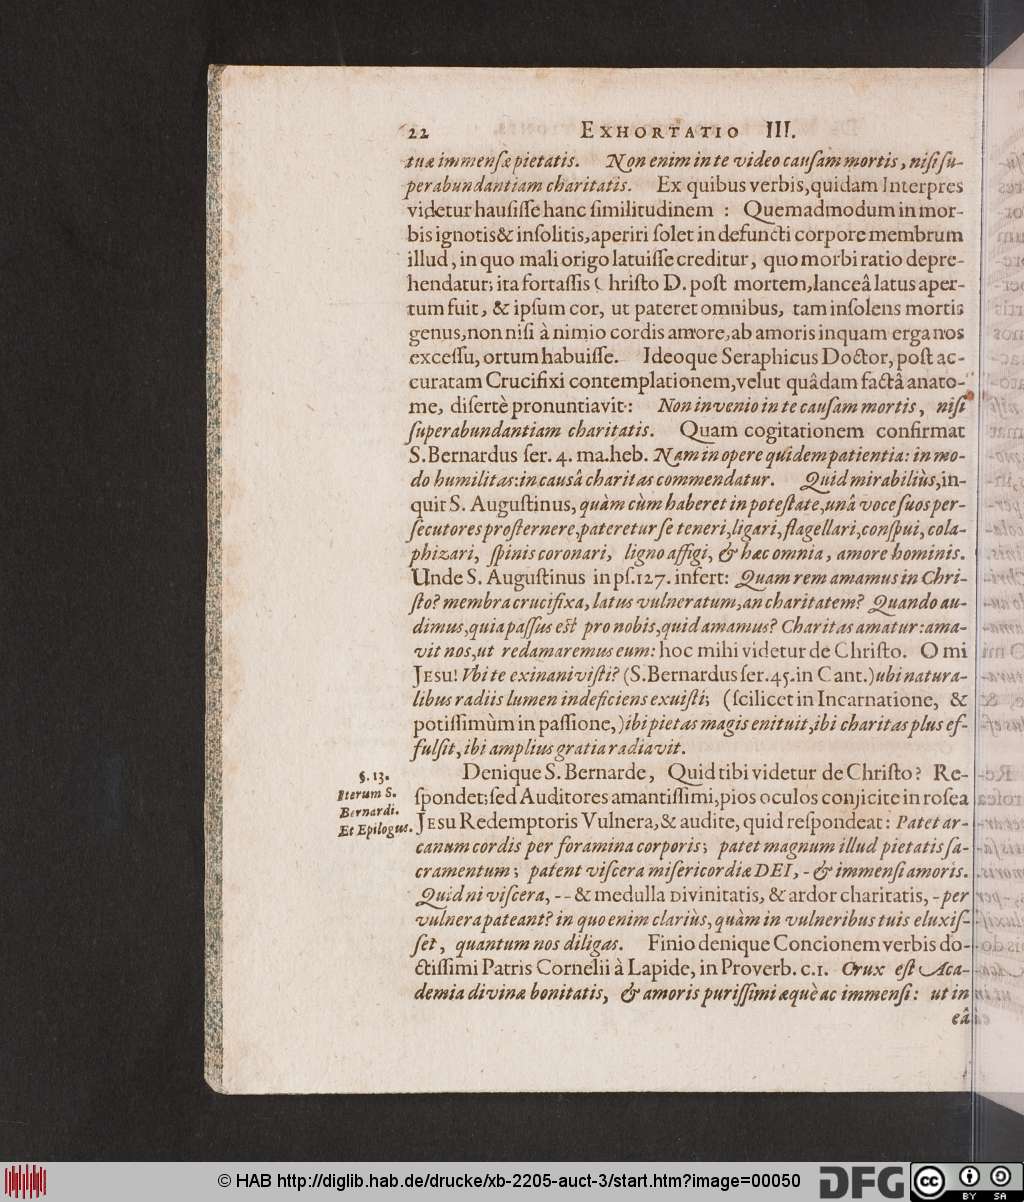 22 EXHORTATIO III.
tuæ immenſæ pietatis. Non enim in te video cauſam mortis, niſi ſu-
perabundantiam charitatis. Ex quibus verbis, quidam Interpres
videtur hauſiſſe hanc ſimilitudinem : Quemadmodum in mor-
bis ignotis & inſolitis, aperiri ſolet in defuncti corpore membrum
illud, in quo mali origo latuiſſe creditur, quo morbi ratio depre-
hendatur; ita fortaſſis Chriſto D. poſt mortem, lanceâ latus aper-
tum fuit, & ipſum cor, ut pateret omnibus, tam inſolens mortis
genus, non niſi à nimio cordis amore, ab amoris inquam erga nos
exceſſu, ortum habuiſſe. Ideoque Seraphicus Doctor, poſt ac-
curatam Crucifixi contemplationem, velut quâdam factâ anato-
me, diſertè pronuntiavit: Non invenio in te cauſam mortis, niſi
ſuperabundantiam charitatis. Quam cogitationem confirmat
S. Bernardus ſer. 4. ma. heb. Nam in opere quidem patientia: in mo-
do humilitas: in causâ charitas commendatur. Quid mirabiliùs, in-
quit S. Auguſtinus, quàm cùm haberet in poteſtate, unâ voce ſuos per-
ſecutores proſternere, pateretur ſe teneri, ligari, flagellari, conſpui, cola-
phizari, ſpinis coronari, ligno affigi, & hæc omnia, amore hominis.
Unde S. Auguſtinus in pſ. 127. infert: Quam rem amamus in Chri-
ſto? membra crucifixa, latus vulneratum, an charitatem? Quando au-
dimus, quia paſſus eſt pro nobis, quid amamus? Charitas amatur: ama-
vit nos, ut redamaremus eum: hoc mihi videtur de Chriſto. O mi
JESU! Vbi te exinaniviſti? (S. Bernardus ſer. 45. in Cant.) ubi natura-
libus radiis lumen indeficiens exuiſti; (ſcilicet in Incarnatione, &
potiſſimùm in paſſione,) ibi pietas magis enituit, ibi charitas plus ef-
fulſit, ibi amplius gratia radiavit.
§. 13.
Iterum S.
Bernardi.
Et Epilogus.
Denique S. Bernarde, Quid tibi videtur de Chriſto? Re-
ſpondet; ſed Auditores amantiſſimi, pios oculos conjicite in roſea
JESU Redemptoris Vulnera, & audite, quid reſpondeat: Patet ar-
canum cordis per foramina corporis; patet magnum illud pietatis ſa-
cramentum; patent viſcera miſericordiæ DEI, - & immenſi amoris.
Quid ni viſcera, -- & medulla Divinitatis, & ardor charitatis, - per
vulnera pateant? in quo enim clariùs, quàm in vulneribus tuis eluxiſ-
ſet, quantum nos diligas. Finio denique Concionem verbis do-
ctiſſimi Patris Cornelii à Lapide, in Proverb. c. 1. Crux eſt Aca-
demia divinæ bonitatis, & amoris puriſſimi æquè ac immenſi: ut in
eâ
© HAB http://diglib.hab.de/drucke/xb-2205-auct-3/start.htm?image=00050
DFG
cc BY SA